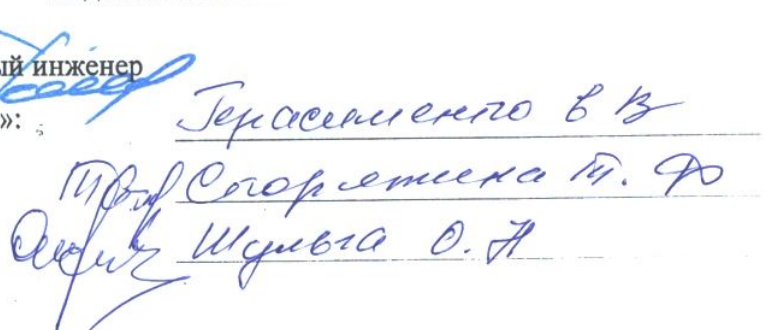 ый инженер
»:
Герасименко В В
Сторожина Т. Ф
Шульга О. Н